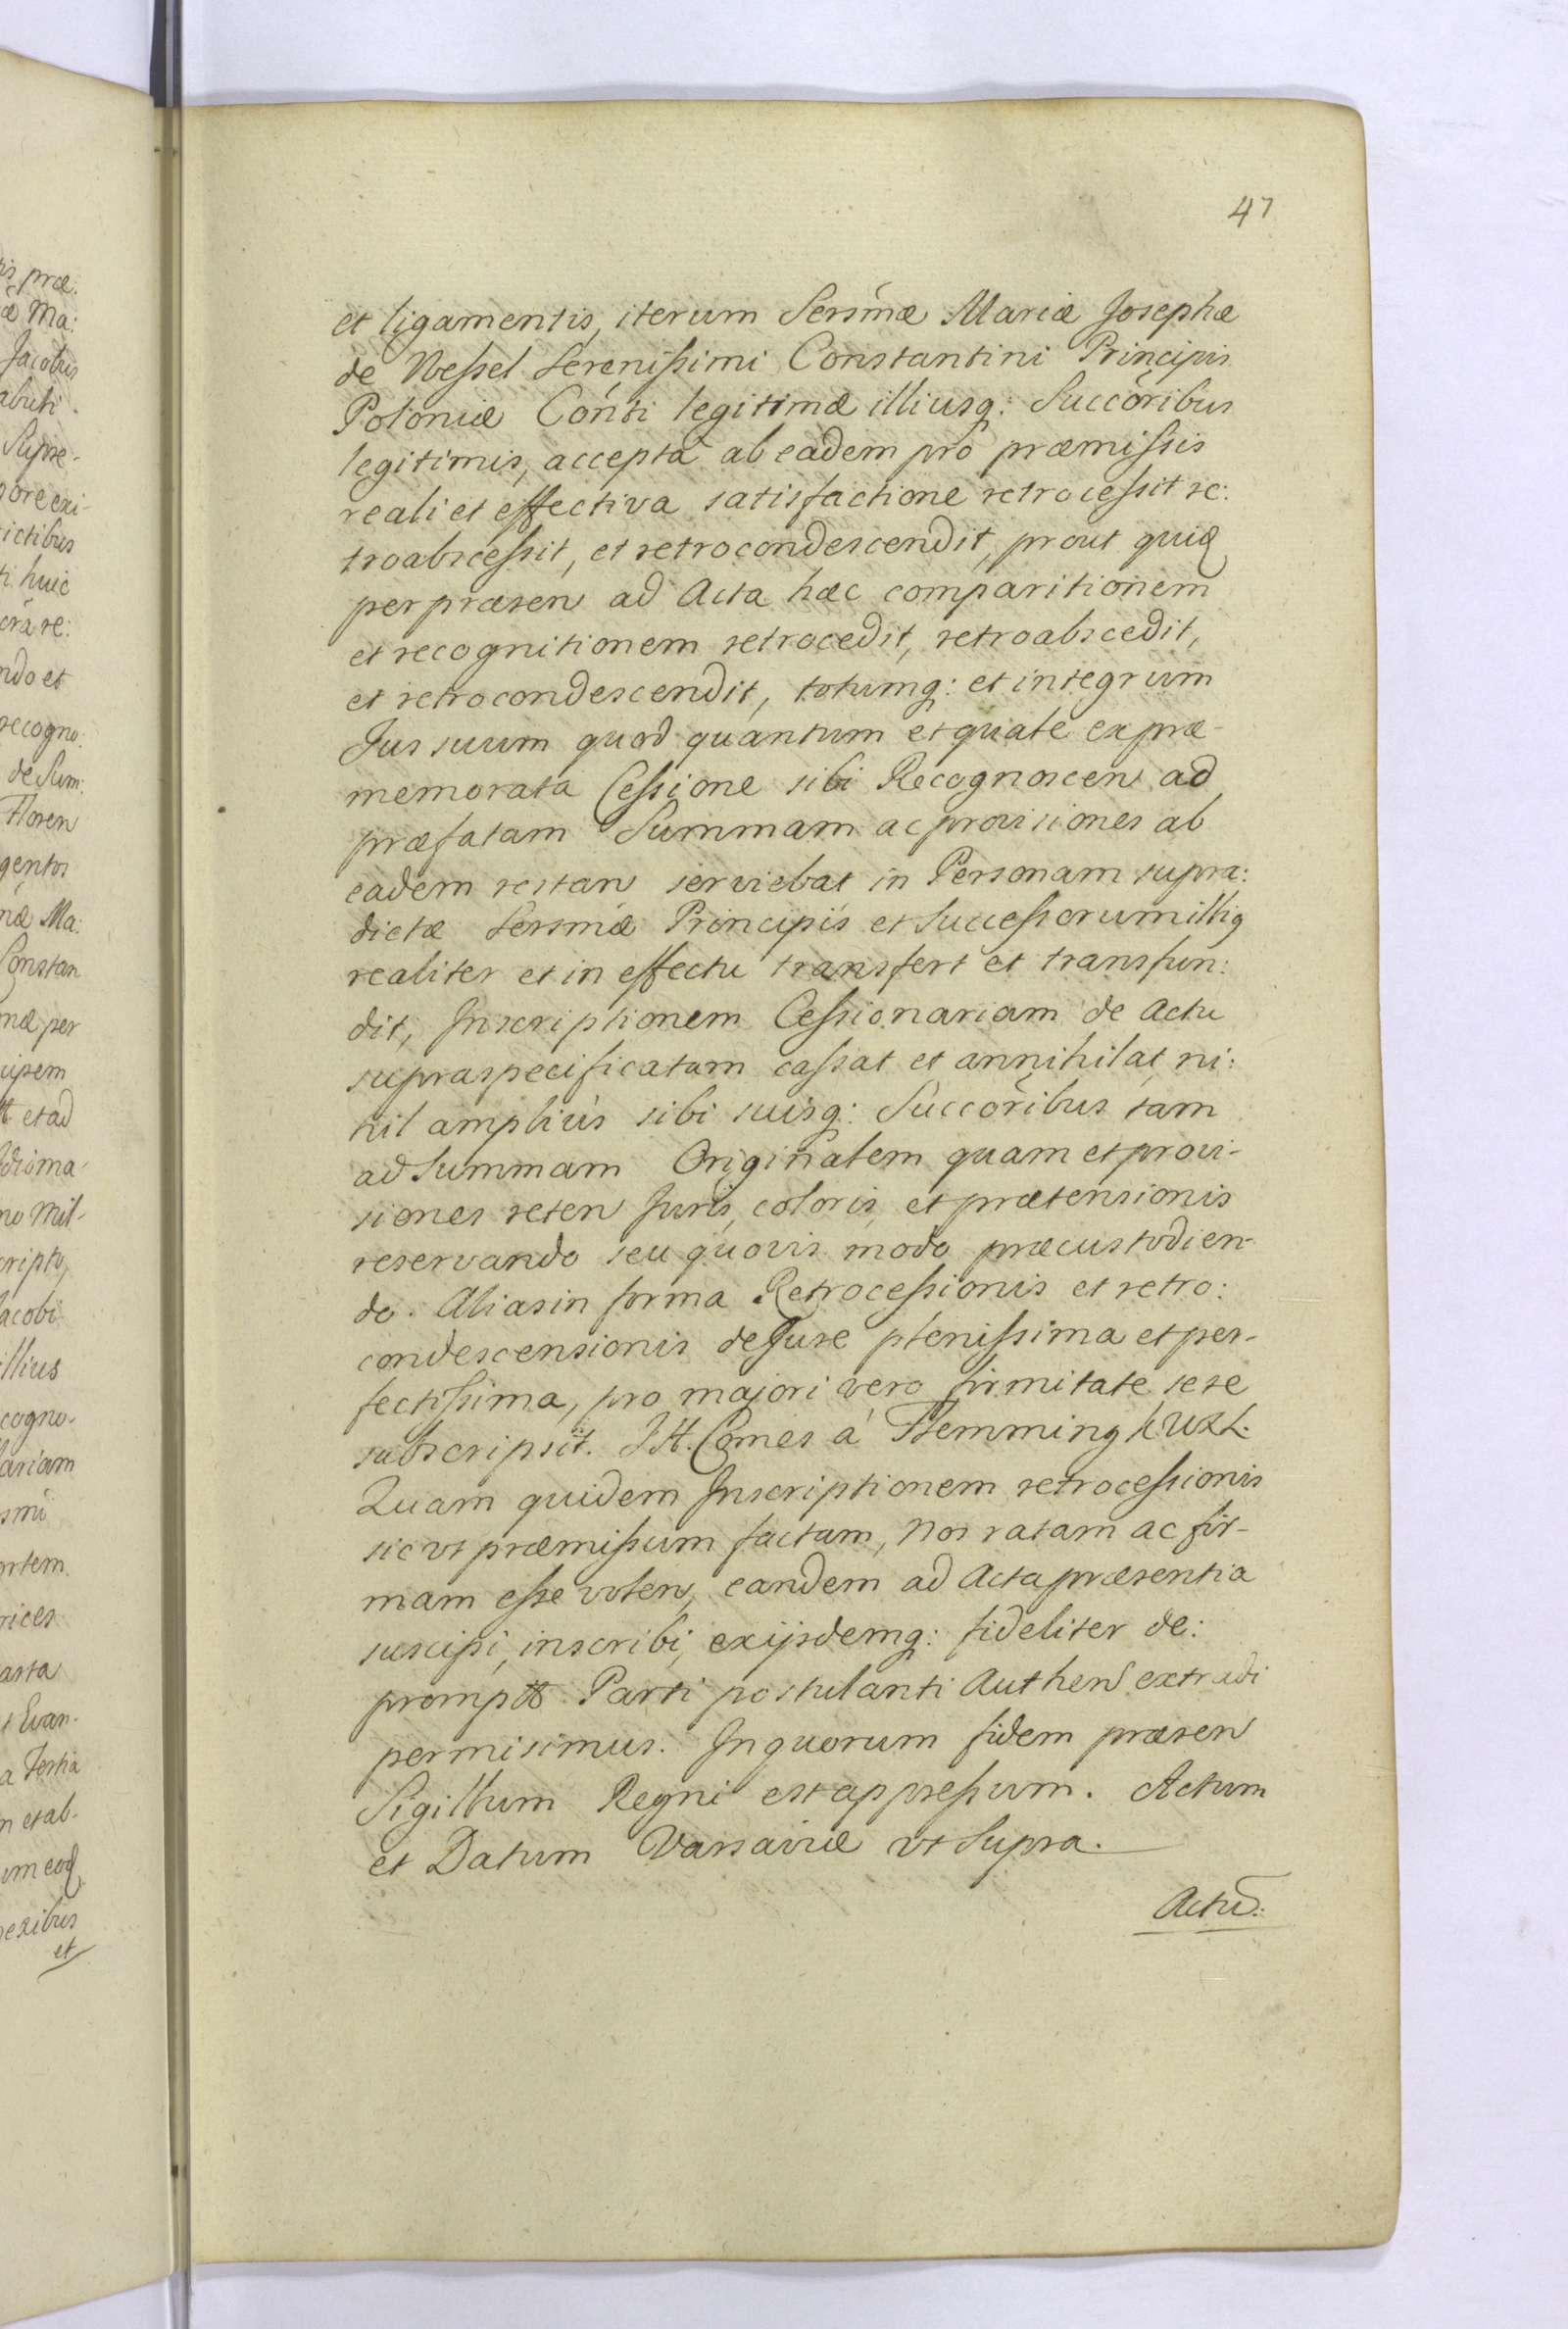 47
et ligamentis, iterum Sersmæ Mariæ Josephæ
de Wessel Serenissimi Constantini Principis
Poloniæ Conti legitimæ illiusq: Succoribus
legitimis, accepta ab eadem pro præmissis
reali et effectiva satisfactione retrocessit re:
troabscessit, et retrocondescendit, prout quidē
per præsen ad Acta hæc comparitionem
et recognitionem retrocedit, retroabscedit,
et retrocondescendit, totumq: et integrum
Jus suum quod quantum et quale ex præ-
memorata Cessione sibi Recognoscen ad
præfatam Summam ac provisiones ab
eadem restan serviebat in Personam supra:
dictæ Sersmæ Principis et Successorum illiq
realiter et in effectu transfert et transfun:
dit, Inscriptionem Cessionariam de Actu
supraspecificatam cassat et annihilat, ni:
hil amplius sibi suisq: Succoribus tam
ad Summam Originalem quam et provi-
siones reten Juris, coloris, et prætensionis
reservando seu quovis modo præcustodien-
do. Alias in forma Retrocessionis et retro:
condescensionis de Jure plenissima et per-
fectissima, pro majori vero firmitate sese
subscripsit. J.H. Comes á Flemming
Quam quidem Inscriptionem retrocessionis
sic vt præmissum factam, Nos ratam ac fir-
mam esse volen, eandem ad Acta præsentia
suscipi, inscribi, exijsdemq: fideliter de:
prompt Parti postulanti Authen extradi
permisimus. In quorum fidem præsen
Sigillum Regni est appressum. Actum
et Datum Varsaviæ vt Supra.
Actu:
is præ:
æ Ma:
Jacobus
Supre-
ictibus
ti huic
ndo et
recogno:
de Sum:
Floren
gentos
næ Ma:
Constan
næ per
et ad
no Mil-
cripto,
Jacobi
illius
cogno-
lariam
ortem
rices
arta
t Evan-
a Tertia
n et ab-
et